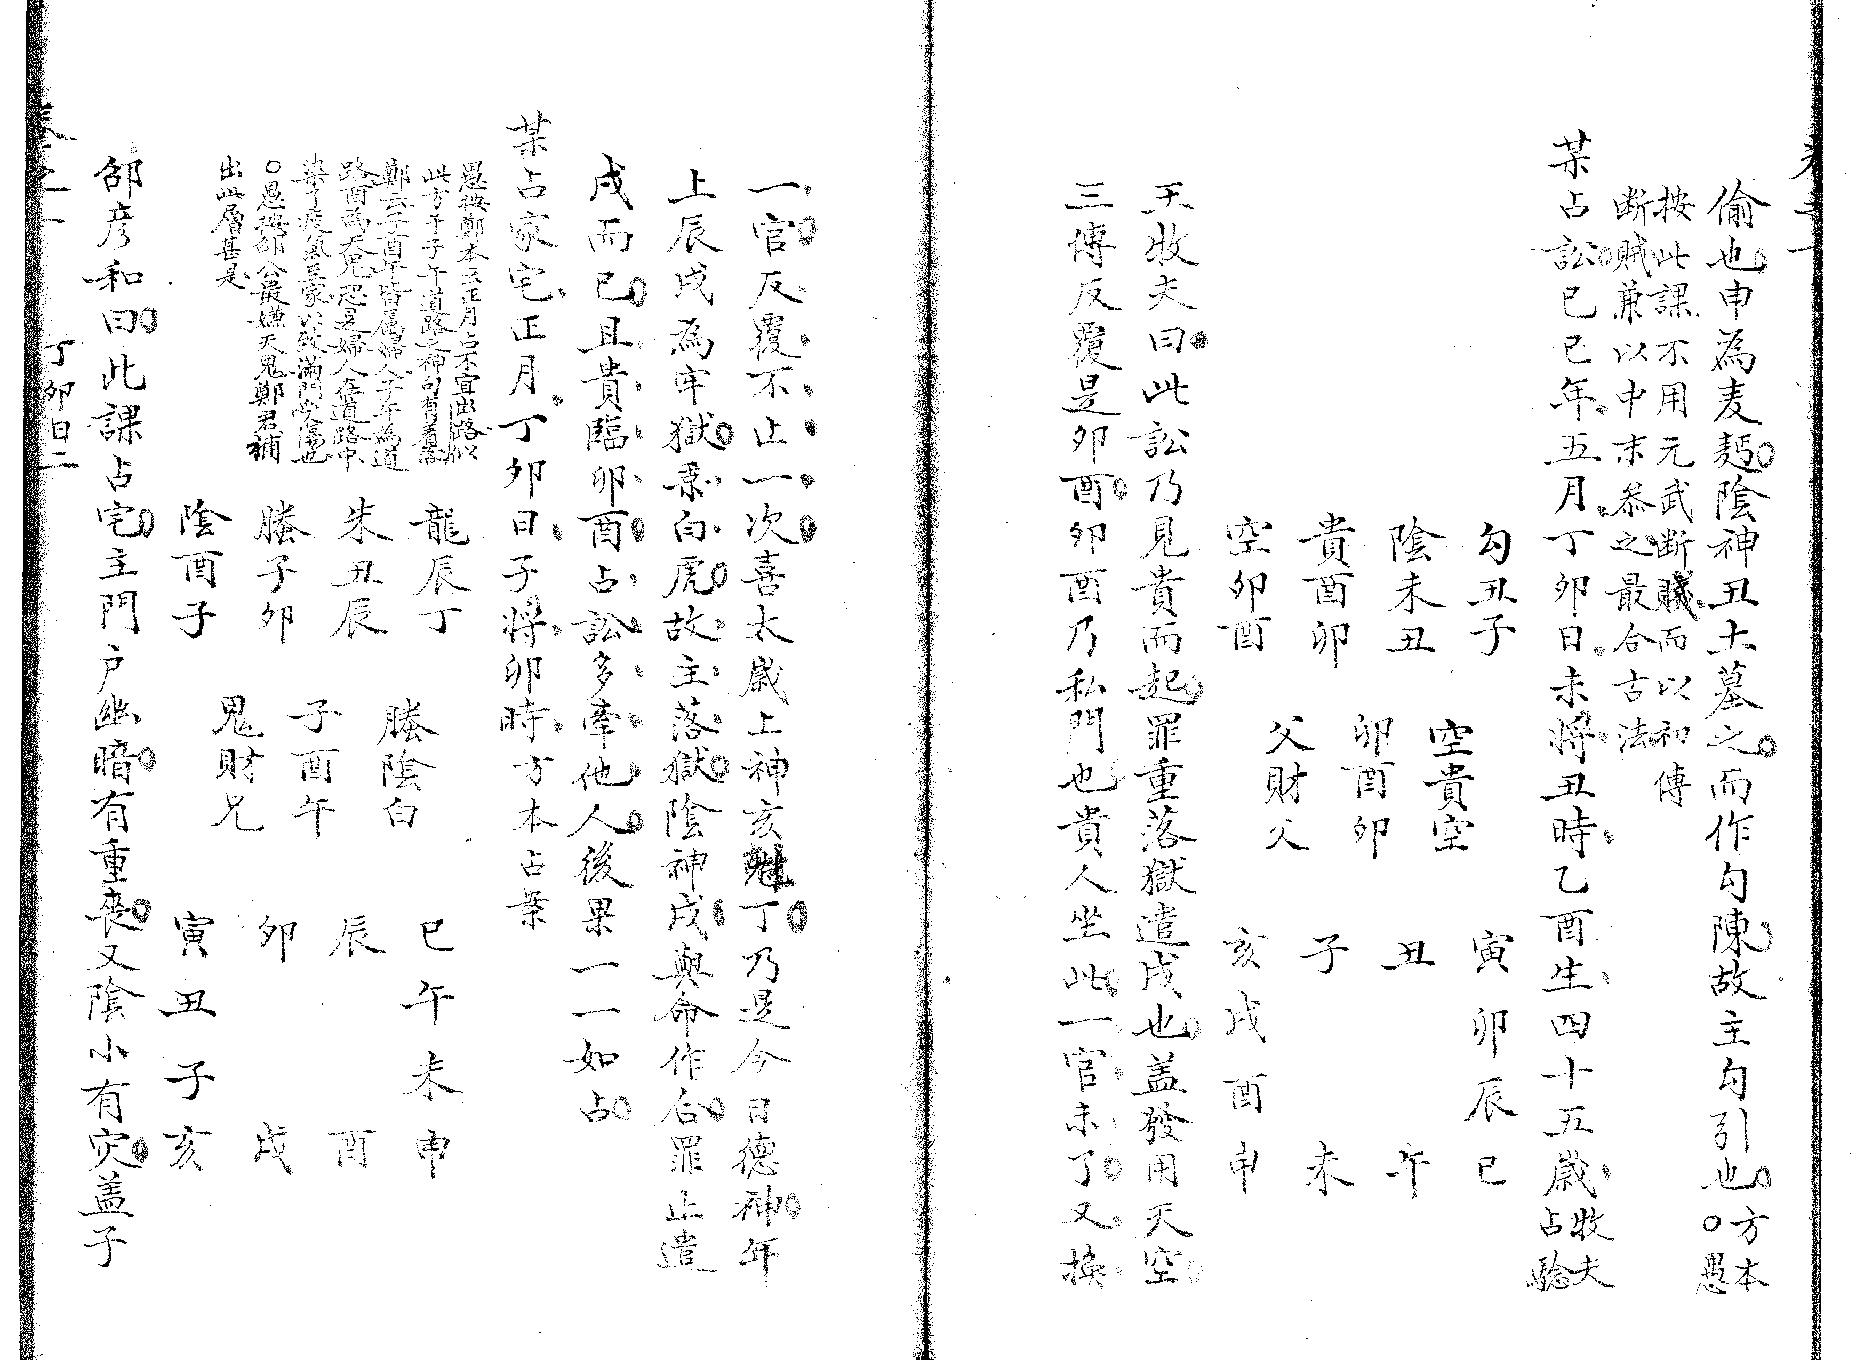 偷也申為麦麪陰神丑土墓之而作勾陳故主勾引也方本○愚
按此課不用元武断賊而以初傳
断賊兼以中末叅之最合古法
某占訟己巳年五月丁卯日未將丑時乙酉生四十五歲牧夫占驗
勾丑子
陰未丑
貴酉卯
空卯酉
空貴空
卯酉卯
父財父
寅卯辰巳
丑 午
子 未
亥戌酉申
王牧夫曰此訟乃見貴而起罪重落獄遣戍也盖發用天空
三傳反覆是卯酉卯酉乃私門也貴人坐此一官未了又換
一官反覆不止一次喜太歲上神亥丁乃是今日德神年
上辰戌為牢獄乘白虎故主落獄陰神戌與命作合罪止遣
戍而已且貴臨卯酉占訟多牽他人後果一一如占
某占家宅正月丁卯日子將卯時方本占案
愚按鄭本云正月占不宜出路以
此方子子午道路之神
鄭云子酉卑皆屬婦人子午為道
路酉為天鬼恐是婦人在道路中
染了疫氣至家以致滿門灾傷也
○愚按邵公最嫌天鬼鄭君補
出此層甚是
龍辰丁
朱丑辰
螣子卯
陰酉子
螣陰白
子酉午
鬼財兄
巳午未申
辰 酉
卯 戌
寅丑子亥
邵彦和曰此課占宅主門户幽暗有重喪又陰小有灾盖子
丁卯日二